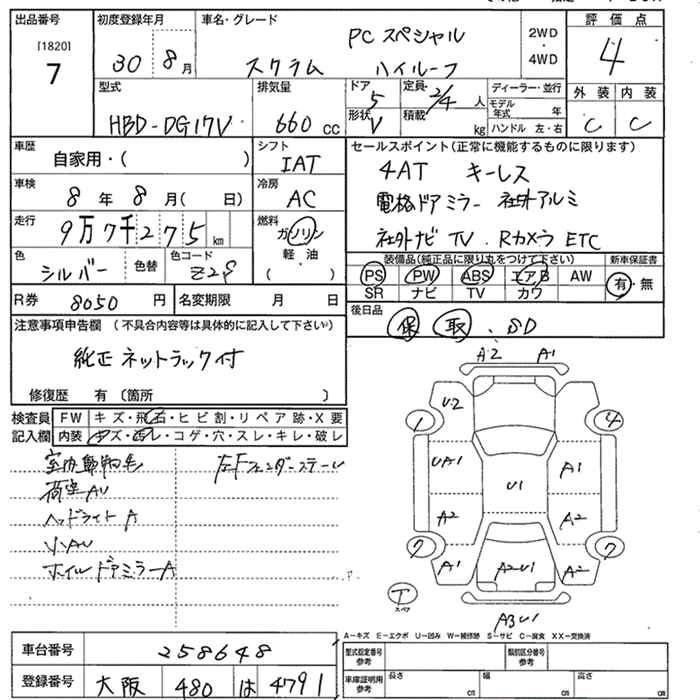 出品番号 [1820] 7
初度登録年月 30 8月
車名・グレード PC スペシャル
スクラム ハイルーフ
2WD・4WD
評価点 4
外装 C 内装 C
型式 HBD-DG17V
排気量 660 cc
ドア 5
形状 V
定員 2/4 人
積載 kg
ディーラー・並行
モデル年式 年
ハンドル 左・右
車歴 自家用・( )
シフト IAT
車検 8年8月( 日)
冷房 AC
走行 9万7千275 km
燃料 ガソリン 軽油 ( )
色 シルバー 色替
色コード Z2S
R券 8050 円
名変期限 月 日
セールスポイント(正常に機能するものに限ります)
4AT キーレス
電格ドアミラー 社外アルミ
社外ナビ TV Rカメラ ETC
装備品(純正品に限り丸をつけて下さい)
PS PW ABS エアB AW
SR ナビ TV カワ
新車保証書 有・無
後日品 保 取 . SD
注意事項申告欄 (不具合内容等は具体的に記入して下さい)
純正ネットラック付
修復歴 有 〔箇所 〕
検査員記入欄
FW キズ・飛石・ヒビ割・リペア跡・X要
内装 キズ・汚レ・コゲ・穴・スレ・キレ・破レ
左Fフェンダーステール
荷室AU
ヘッドライトA
ホイルドアミラーA
A2 A1
U2
1 4
UA1 U1 A1
A2 A2
7 7
A1 A2U1 A2
T スペア
A3U1
A−キズ E−エクボ U−凹み W−補修跡 S−サビ C−腐食 XX−交換済
車台番号 258648
登録番号 大阪 480 は 4791
型式指定番号 参考
類別区分番号 参考
車庫証明用 参考
長さ cm 幅 cm 高さ cm